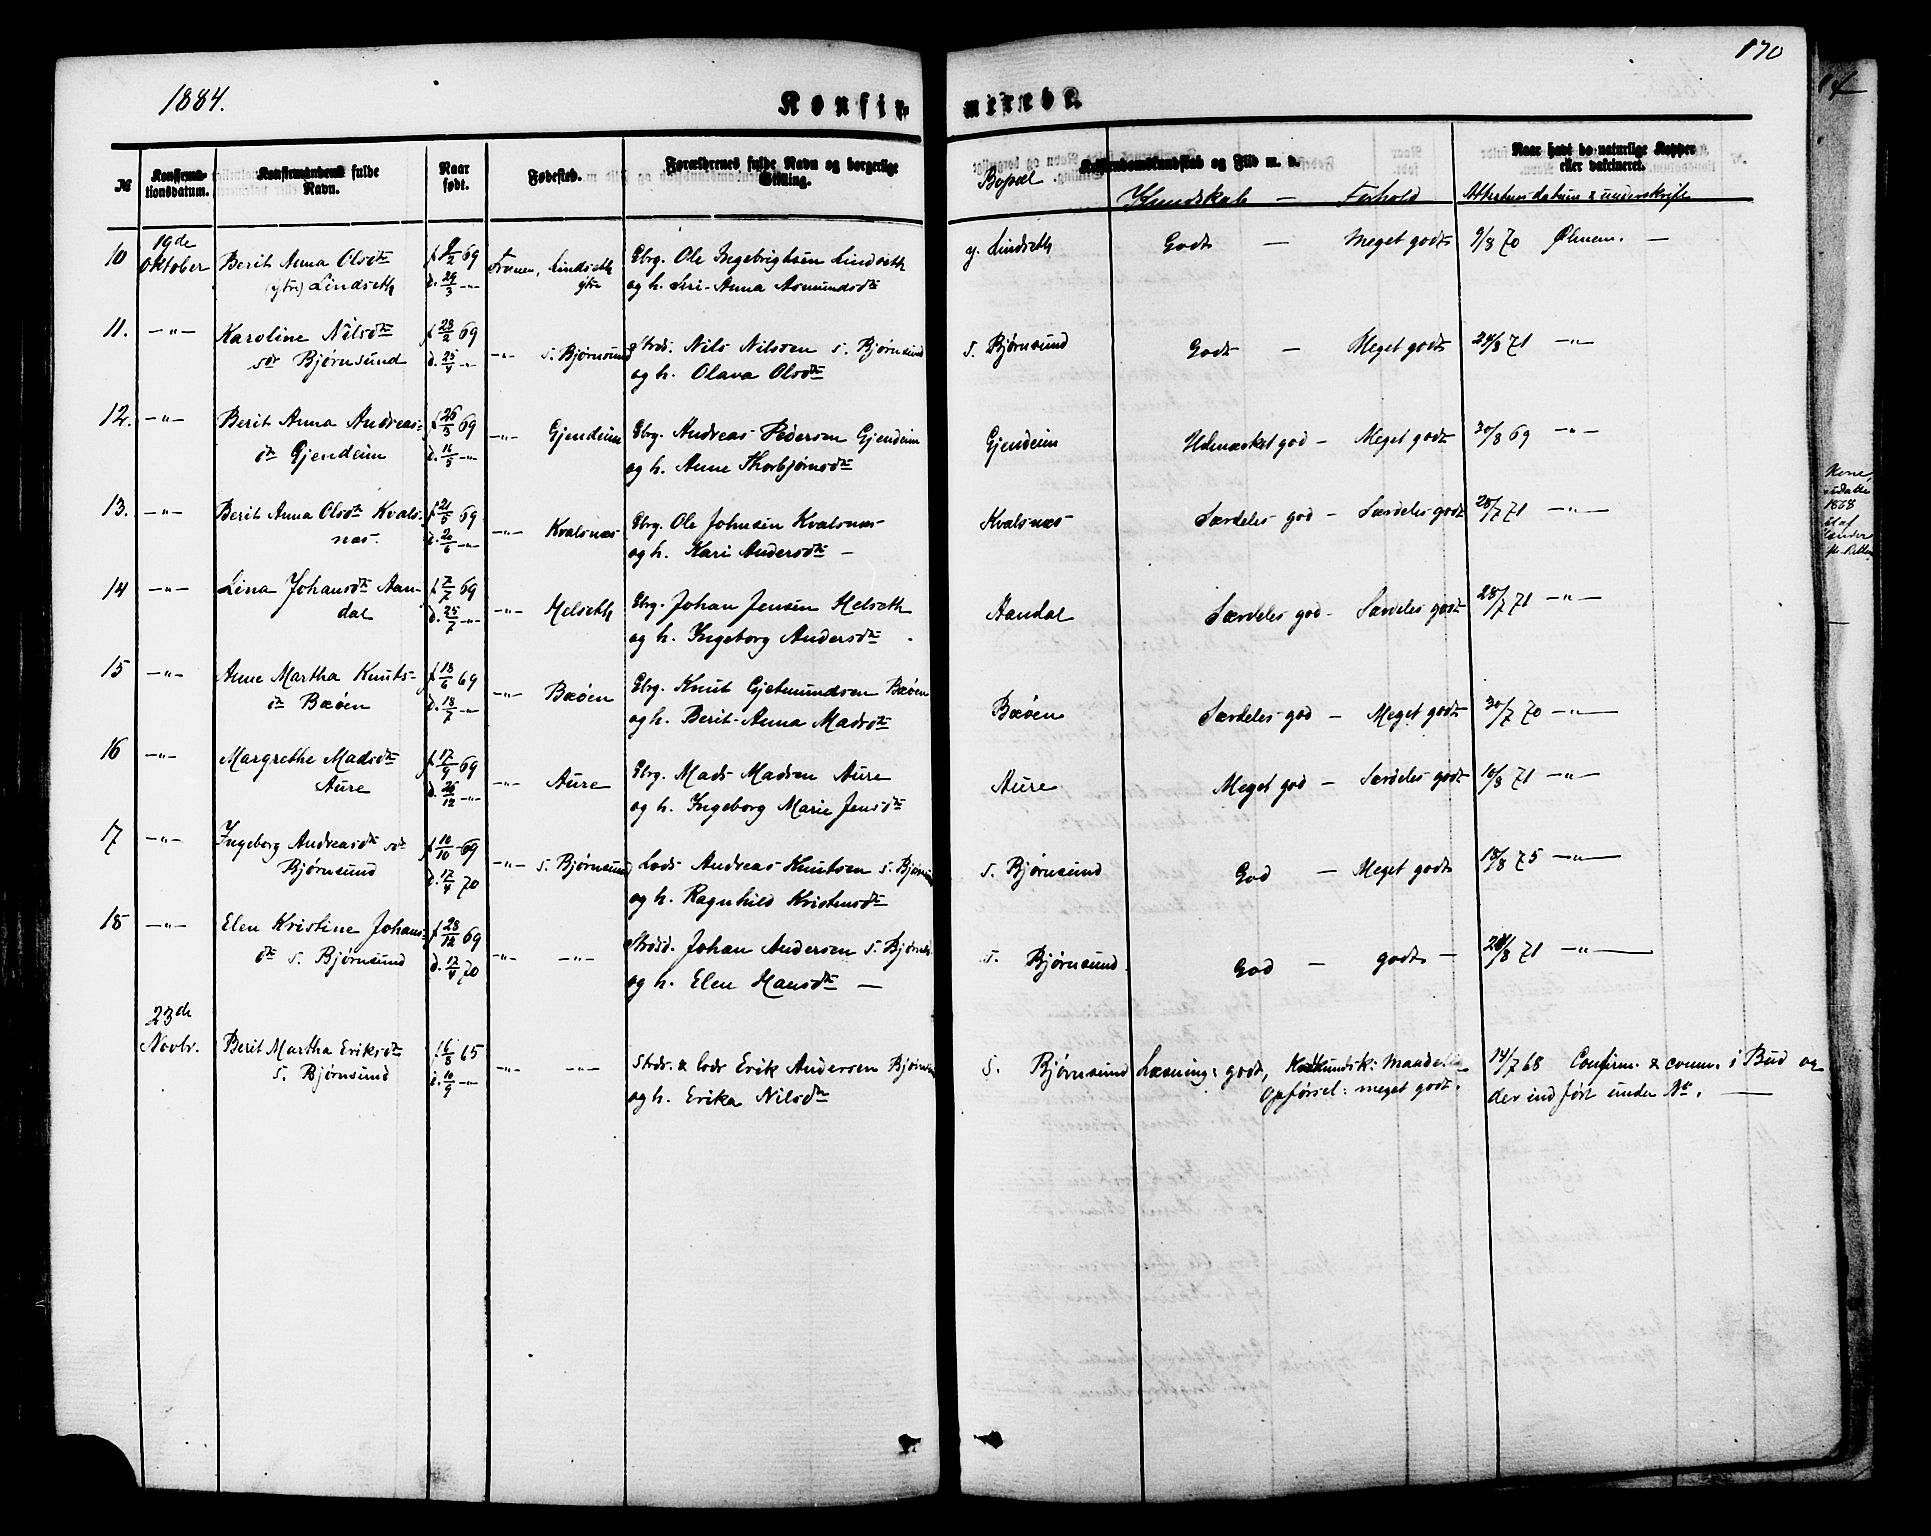 170
1884.
Konfirmerede.
№
Konfirmationsdatum.
Konfirmandens fulde Navn.
Naar født.
Fødested.
Forældrenes fulde Navn og borgerlige Stilling.
Bopæl
Kristendomskundskab og Flid m. v.
Kundskab — Forhold
Naar havt de naturlige Kopper eller vakcineret.
Attestens datum & underskrift
10 19de Oktober Berit Anna Olsdtr (ytre) Lindseth f 9/2 69 d. 29/3 -„- Frænen, Lindseth ytre Gbrg. Ole Ingebrigtsen Lindseth og h. Siri-Anna Asmundsdtr y. Lindseth Godt — Meget godt 9/8 70 Ølmem. —
11. -„- Karoline Nilsdtr sdr Bjørnsund f 28/2 69 d. 25/4 -„- -„- S. Bjørnsund Strds. Nils Nilsen S. Bjørnsund og h. Olava Olsdtr S. Bjørnsund Godt — Meget godt 24/8 71 -„-
12. -„- Berit Anna Andreasdtr Gjendeim f 26/3 69 d. 16/5 -„- -„- Gjendeim Gbrg. Andreas Pedersen Gjendeim og h. Anne Thorbjørnsdtr Gjendeim Udmærket god — Meget godt 30/8 69 -„-
13. -„- Berit Anna Olsdtr Kvalsnæs. f 21/5 69 d. 20/6 -„- -„- Kvalsnæs Gbrg. Ole Johnsen Kvalsnæs og h. Kari Andersdtr — Kvalsnæs Særdeles god — Særdeles godt 28/7 71 -„-
14 -„- Lina Johansdtr Aandal f 7/7 69 d. 25/7 -„- -„- Helseth Gbrg. Johan Jensen Helseth og h. Ingeborg Andersdtr Aandal Særdeles god — Særdeles godt 28/7 71 -„-
15 -„- Anne Martha Knutsdtr Bøen f 18/6 69 d. 18/7 -„- -„- Bøen Gbrg. Knut Gjetmundsen Bøen og h. Berit-Anna Madsdtr Bøen Særdeles god — Meget godt 30/7 70 -„-
16 -„- Margrethe Madsdtr Aure f 17/9 69 d. 26/12 -„- -„- Aure Gbrg. Mads Madsen Aure og h. Ingeborg Marie Jensdtr Aure Meget god — Særdeles godt 10/8 71 -„-
17 -„- Ingeborg Andreasdtr sdr Bjørnsund f 10/10 69 d. 17/4 70 -„- S. Bjørnsund Lods Andreas Knutsen S. Bjørnsund og h. Ragnhild Kristensdtr S. Bjørnsund God — Meget godt 18/8 75 -„-
18 -„- Elen Kristine Johansdtr S. Bjørnsund f 28/12 69 d. 17/4 70 -„- -„- Strdsd. Johan Andersen S. Bjørnsd. og h. Elen Hansdtr — S. Bjørnsund God — godt — 24/8 71 -„-
23de Novbr. Berit Martha Eriksdtr S. Bjørnsund f. 16/8 65 d. 10/9 -„- -„- -„- Strds. & Lods Erik Andersen Bjørnsund og h. Erika Nilsdtr S. Bjørnsund Læsning: godt, Kundskab: Maadelig Opførsel: meget godt. 14/7 68 Confirm. & comm. i Bud og der indført under №. —